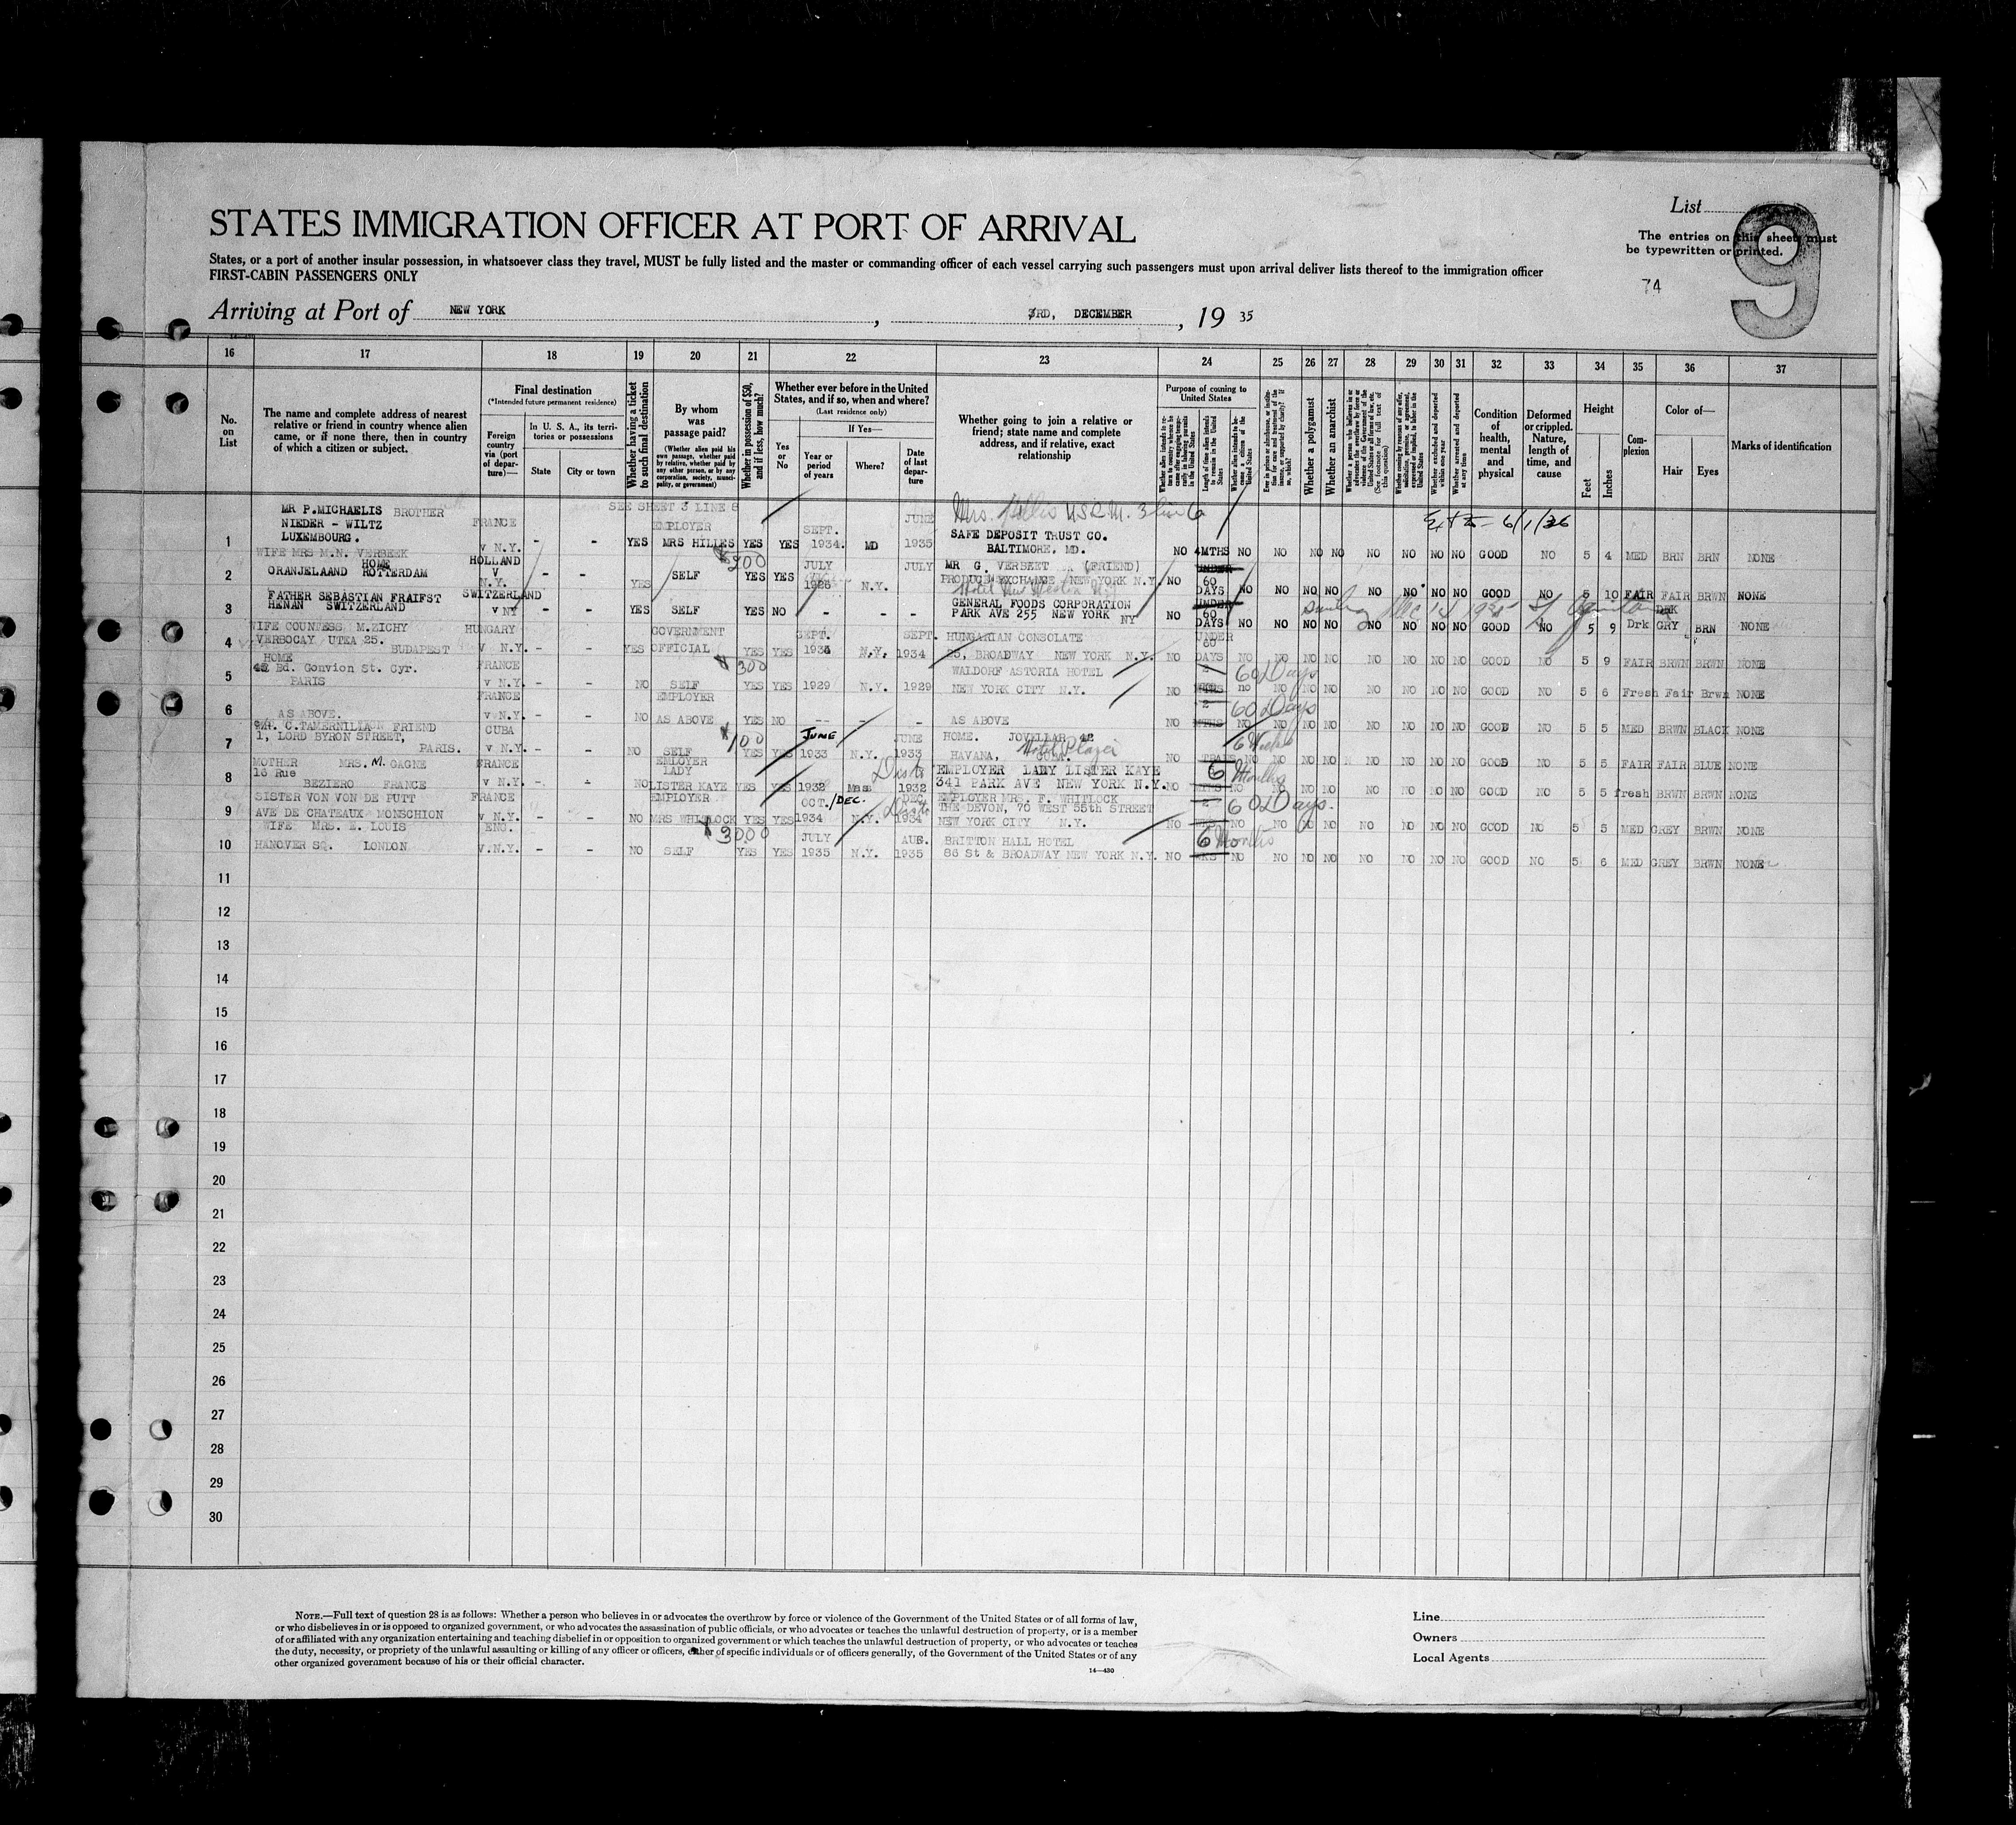 STATES IMMIGRATION OFFICER AT PORT OF ARRIVAL
States, or a port of another insular possession, in whatsoever class they travel, MUST be fully listed and the master or commanding officer of each vessel carrying such passengers must upon arrival deliver lists thereof to the immigration officer
FIRST-CABIN PASSENGERS ONLY
List
9
The entries on this sheet must
be typewritten or printed.
74
Arriving at Port of NEW YORK, 3RD, DECEMBER, 19 35
16 17 18 19 20 21 22 23 24 25 26 27 28 29 30 31 32 33 34 35 36 37
No. on List
The name and complete address of nearest relative or friend in country whence alien came, or if none there, then in country of which a citizen or subject.
Final destination
(*Intended future permanent residence)
Foreign country via (port of departure)—
In U. S. A., its territories or possessions
State
City or town
Whether having a ticket to such final destination
By whom was passage paid?
(Whether alien paid his own passage, whether paid by relative, whether paid by any other person, or by any corporation, society, municipality, or government)
Whether in possession of $50, and if less, how much?
Whether ever before in the United States, and if so, when and where?
(Last residence only)
Yes or No
If Yes—
Year or period of years
Where?
Date of last departure
Whether going to join a relative or friend; state name and complete address, and if relative, exact relationship
Purpose of coming to United States
Length of time alien intends to remain in the United States
Whether a polygamist
Whether an anarchist
Condition of health, mental and physical
Deformed or crippled. Nature, length of time, and cause
Height
Feet
Inches
Complexion
Color of—
Hair
Eyes
Marks of identification
SEE SHEET 3 LINE 8
1 MR P.MICHAELIS BROTHER
NIEDER - WILTZ
LUXEMBOURG.
FRANCE v N.Y. - - YES EMPLOYER MRS HILLES YES YES SEPT. 1934. MD JUNE 1935
SAFE DEPOSIT TRUST CO.
BALTIMORE. MD.
NO 4MTHS NO NO NO NO NO NO NO NO GOOD NO 5 4 MED BRN BRN NONE
6/1/36
2 WIFE MRS M.N. VERBEEK
HOME
ORANJELAAND ROTTERDAM
HOLLAND V N.Y. - - YES SELF YES YES JULY N.Y. JULY
MR G. VERBEET (FRIEND)
PRODUCE EXCHANGE NEW YORK N.Y.
NO 60 DAYS NO NO NO NO NO NO NO NO GOOD NO 5 10 FAIR FAIR BRWN NONE
3 FATHER SEBASTIAN FRAIFST
HENAN SWITZERLAND
SWITZERLAND v NY - - YES SELF YES NO - - -
GENERAL FOODS CORPORATION
PARK AVE 255 NEW YORK NY
NO UNDER 60 DAYS NO NO NO NO NO NO NO NO GOOD NO 5 9 Drk GRY BRN NONE
4 WIFE COUNTESS M.ZICHY
VERBOCAY UTEA 25. BUDAPEST
HUNGARY V N.Y. - - YES GOVERNMENT OFFICIAL YES YES SEPT. N.Y. SEPT. 1934
HUNGARIAN CONSOLATE
25, BROADWAY NEW YORK N.Y.
NO UNDER 60 DAYS NO NO NO NO NO NO NO NO GOOD NO 5 9 FAIR BRWN BRWN NONE
5 HOME
42 Bd. Gonvion St. Cyr.
PARIS
FRANCE v N.Y. - - NO SELF $300 YES YES 1929 N.Y. 1929
WALDORF ASTORIA HOTEL
NEW YORK CITY N.Y.
NO 60 Days no NO NO NO NO NO NO NO GOOD NO 5 6 Fresh Fair Brwn NONE
6 AS ABOVE.
FRANCE v N.Y. - - NO EMPLOYER AS ABOVE YES NO -- - -
AS ABOVE
NO 60 Days NO NO NO NO NO NO NO NO GOOD NO 5 5 MED BRWN BLACK NONE
7 C.TAMERNILIAN FRIEND
1, LORD BYRON STREET,
PARIS.
CUBA v N.Y. - - NO SELF $100 YES YES JUNE 1933 N.Y. JUNE 1933
HOME. JOVELLAR 42
HAVANA, CUBA.
Hotel Plaza
NO 6 Weeks NO NO NO NO NO NO NO NO GOOD NO 5 5 FAIR FAIR BLUE NONE
8 MOTHER MRS. M. GAGNE
16 Rue
BEZIERO FRANCE
FRANCE v N.Y. - - NO EMPLOYER LADY LISTER KAYE YES YES 1932 Mass 1932
EMPLOYER LADY LISTER KAYE
341 PARK AVE NEW YORK N.Y.
NO 6 Months NO NO NO NO NO NO NO NO GOOD NO 5 5 fresh BRWN BRWN NONE
9 SISTER VON VON DE PUTT
AVE DE CHATEAUX MONSCHION
FRANCE v N.Y. - - NO EMPLOYER MRS WHITLOCK YES YES OCT./DEC. 1934 N.Y. DEC. 1934
EMPLOYER MRS. F. WHITLOCK
THE DEVON, 70 WEST 55th STREET
NEW YORK CITY N.Y.
NO 60 Days. NO NO NO NO NO NO NO NO GOOD NO 5 5 MED GREY BRWN NONE
10 WIFE MRS. E. LOUIS
HANOVER SQ. LONDON
ENG. V.N.Y. - - NO SELF $3000 YES YES JULY 1935 N.Y. AUG. 1935
BRITTON HALL HOTEL
86 St & BROADWAY NEW YORK N.Y.
NO 6 Months NO NO NO NO NO NO NO NO GOOD NO 5 6 MED GREY BRWN NONE
11
12
13
14
15
16
17
18
19
20
21
22
23
24
25
26
27
28
29
30
NOTE.—Full text of question 28 is as follows: Whether a person who believes in or advocates the overthrow by force or violence of the Government of the United States or of all forms of law,
or who disbelieves in or is opposed to organized government, or who advocates the assassination of public officials, or who advocates or teaches the unlawful destruction of property, or is a member
of or affiliated with any organization entertaining and teaching disbelief in or opposition to organized government or which teaches the unlawful destruction of property, or who advocates or teaches
the duty, necessity, or propriety of the unlawful assaulting or killing of any officer or officers, either of specific individuals or of officers generally, of the Government of the United States or of any
other organized government because of his or their official character.
14—430
Line
Owners
Local Agents